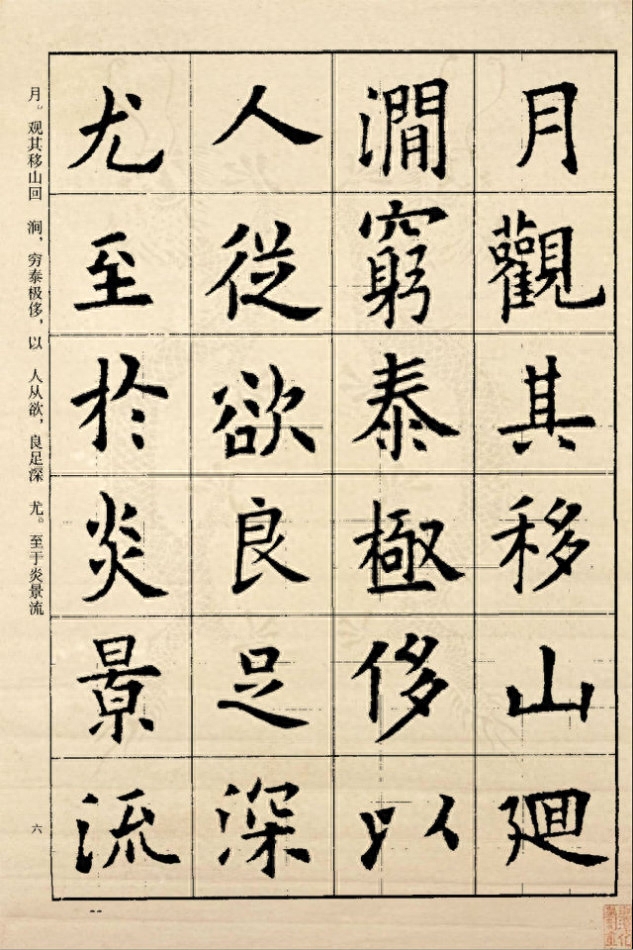 月觀其移山廻
澗窮泰極侈以
人從欲良足深
尤至於炎景流
月。观其移山回 涧，穷泰极侈，以 人从欲，良足深 尤。至于炎景流
六